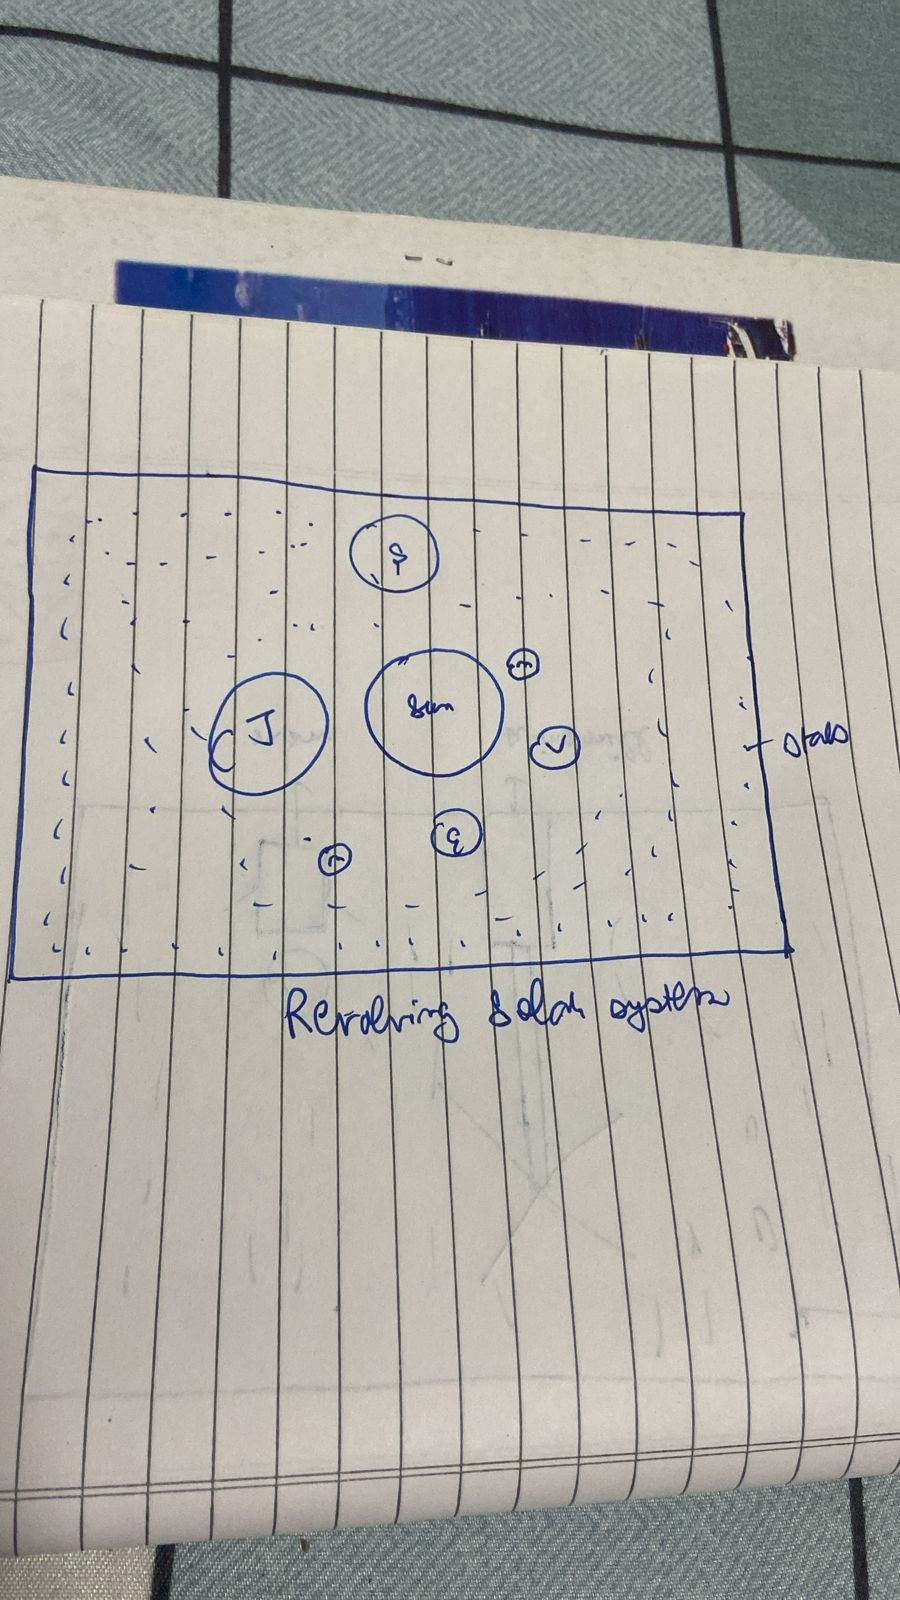 S
m
J
Sun
V
stars
E
m
Revolving Solar system